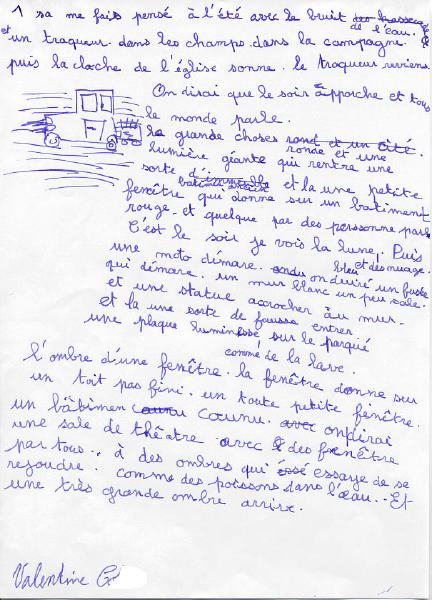 1 sa me fais pensé à l'été avec le bruit
de l'eau.
et un traqueur dans les champs dans la campagne
puis la cloche de l'église sonne. le traqueur reviens
On dirai que le soir approche et tous
le monde parle.
la grande choses ronde et une
lumière géante qui rentre une
sorte d' et la une petite
fenêtre qui donne sur un batiment
rouge. et quelque par des perssonne parle
C'est le soir je vois la lune, Puis
une moto démare. bleu et des nuage.
qui démare. on diré un fuste
un mur blanc un peu sale.
et une statue accrocher au mur.
et la une sorte de fausse entrer
une plaque lumineuse sur le parquié
comme de la lave.
l'ombre d'une fenêtre. la fenêtre donne sur
un toit pas fini. un toute petite fenêtre.
un bâtimen counu. on dirai
une sale de théatre avec des fenêtre
par tous.. à des ombres qui essaye de se
rejoudre. comme des poissons dans l'eau.. Et
une très grande ombre arrive.
Valentine G